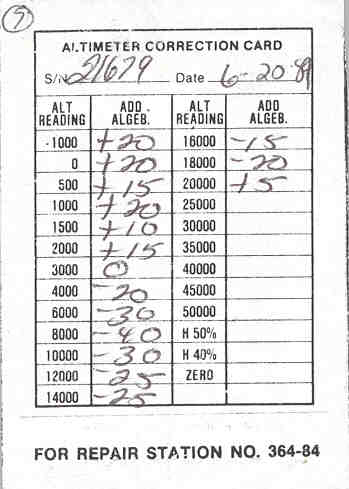 5
ALTIMETER CORRECTION CARD
S/N 21679 Date 6-20-89
ALT READING ADD. ALGEB. ALT READING ADD ALGEB.
-1000 +20 16000 -15
0 +20 18000 -20
500 +15 20000 +5
1000 +20 25000
1500 +10 30000
2000 +15 35000
3000 0 40000
4000 -20 45000
6000 -30 50000
8000 -40 H 50%
10000 -30 H 40%
12000 -25 ZERO
14000 -25
FOR REPAIR STATION NO. 364-84